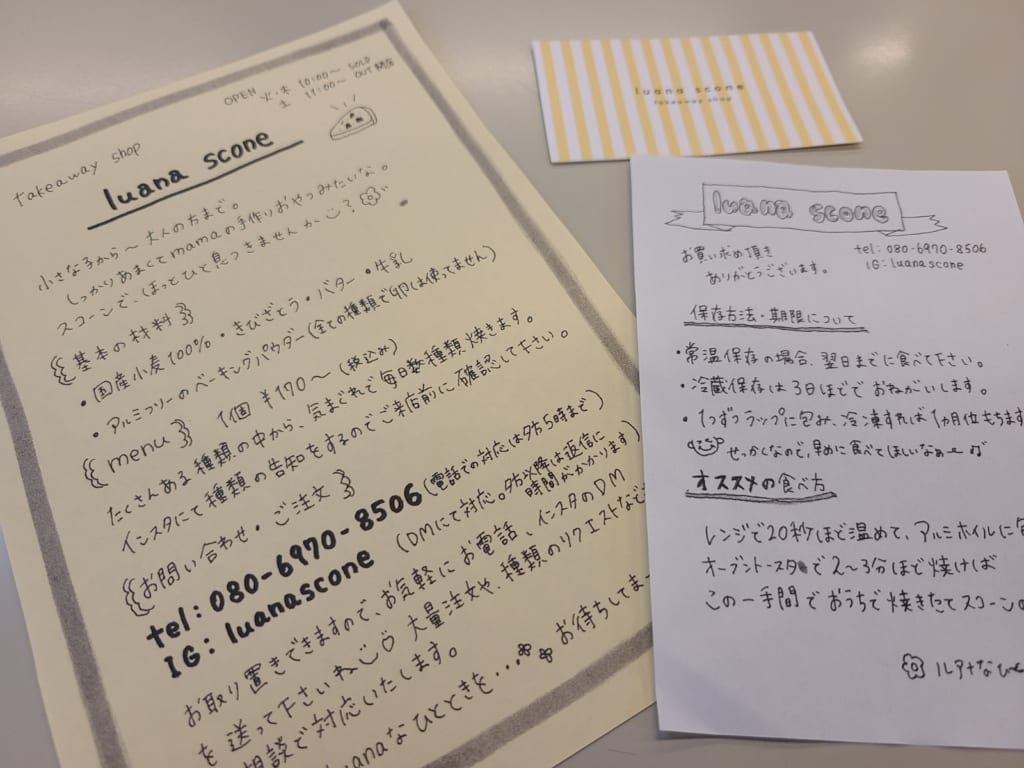 OPEN 火・木 10:00〜 SOLD
土 11:00〜 OUT 閉店
takeaway shop
luana scone
小さな子から〜大人の方まで。
しっかりあまくてmamaの手作りおやつみたいな。
スコーンで、ほっとひと息つきませんか?
基本の材料
・国産小麦100%・きびざとう・バター・牛乳
・アルミフリーのベーキングパウダー(全ての種類で卵は使ってません)
menu 1個 ¥170〜(税込み)
たくさんある種類の中から、気まぐれで毎日数種類焼きます。
インスタにて種類の告知をするのでご来店前に確認して下さい。
お問い合わせ・ご注文
tel: 080-6970-8506(電話での対応は夕方5時まで)
IG: luanascone (DMにて対応。夕方以降は返信に
時間がかかります)
お取り置きできますので、お気軽にお電話、インスタのDM
を送って下さいね 大量注文や、種類のリクエストなど
相談で対応いたします。
luanaなひとときを… お待ちしてまー
luana scone
takeaway shop
luana scone
お買い求め頂き
ありがとうございます。
tel: 080-6970-8506
IG: luanascone
保存方法・期限について
・常温保存の場合、翌日までに食べて下さい。
・冷蔵保存は3日ほどでおねがいします。
・1つずつラップに包み、冷凍すれば1カ月位もちます
せっかくなので、早めに食べてほしいなぁー
オススメの食べ方
レンジで20秒ほど温めて、アルミホイルに包
オーブントースターで2〜3分ほど焼けば
この一手間でおうちで焼きたてスコーンの
ルアナなひと